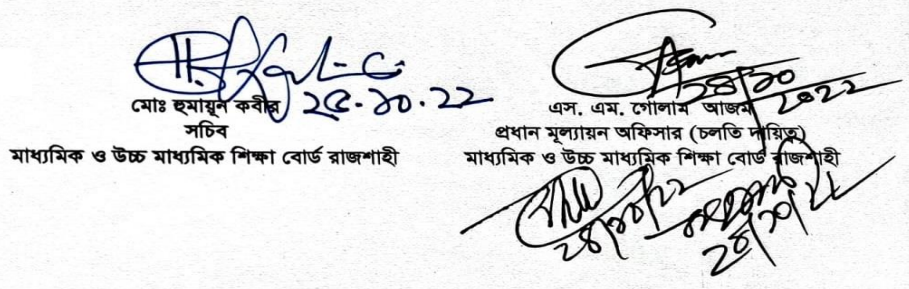 মোঃ হুমায়ূন কবীর ২৫.১০.২২
সচিব
মাধ্যমিক ও উচ্চ মাধ্যমিক শিক্ষা বোর্ড রাজশাহী
২৪/১০
২০২২
এস. এম. গোলাম আজম
প্রধান মূল্যায়ন অফিসার (চলতি দায়িত্ব)
মাধ্যমিক ও উচ্চ মাধ্যমিক শিক্ষা বোর্ড রাজশাহী
২৪/১০/২২
২৪/১০/২২